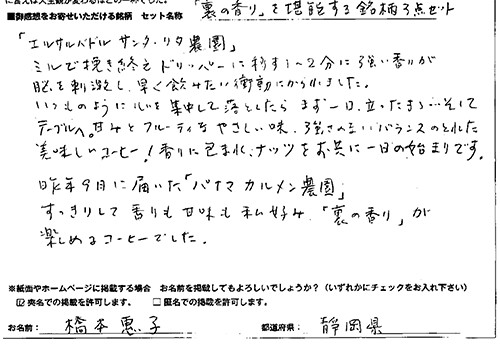 ■御感想をお寄せいただける銘柄 セット名称 「裏の香り」を堪能する銘柄3点セット
「エルサルバドル サンタ・リタ農園」
ミルで挽き終え ドリッパーに移す1〜2分に強い香りが
脳を刺激し、早く飲みたい衝動にかられました。
いつものように心を集中して落としたら まず一口、立ったまま…そして
テーブルへ。甘みとフルーティなやさしい味、強さの バランスのとれた
美味しいコーヒー!香りに包まれ、ナッツをお共に一日の始まりです。
昨年9月に届いた「パナマ カルメン農園」
すっきりして 香りも 甘味も 私好み、「裏の香り」が
楽しめるコーヒーでした。
※紙面やホームページに掲載する場合 お名前を掲載してもよろしいでしょうか?(いずれかにチェックをお入れ下さい)
☑ 実名での掲載を許可します。 □ 匿名での掲載を許可します。
お名前: 橋本恵子 都道府県: 静岡県